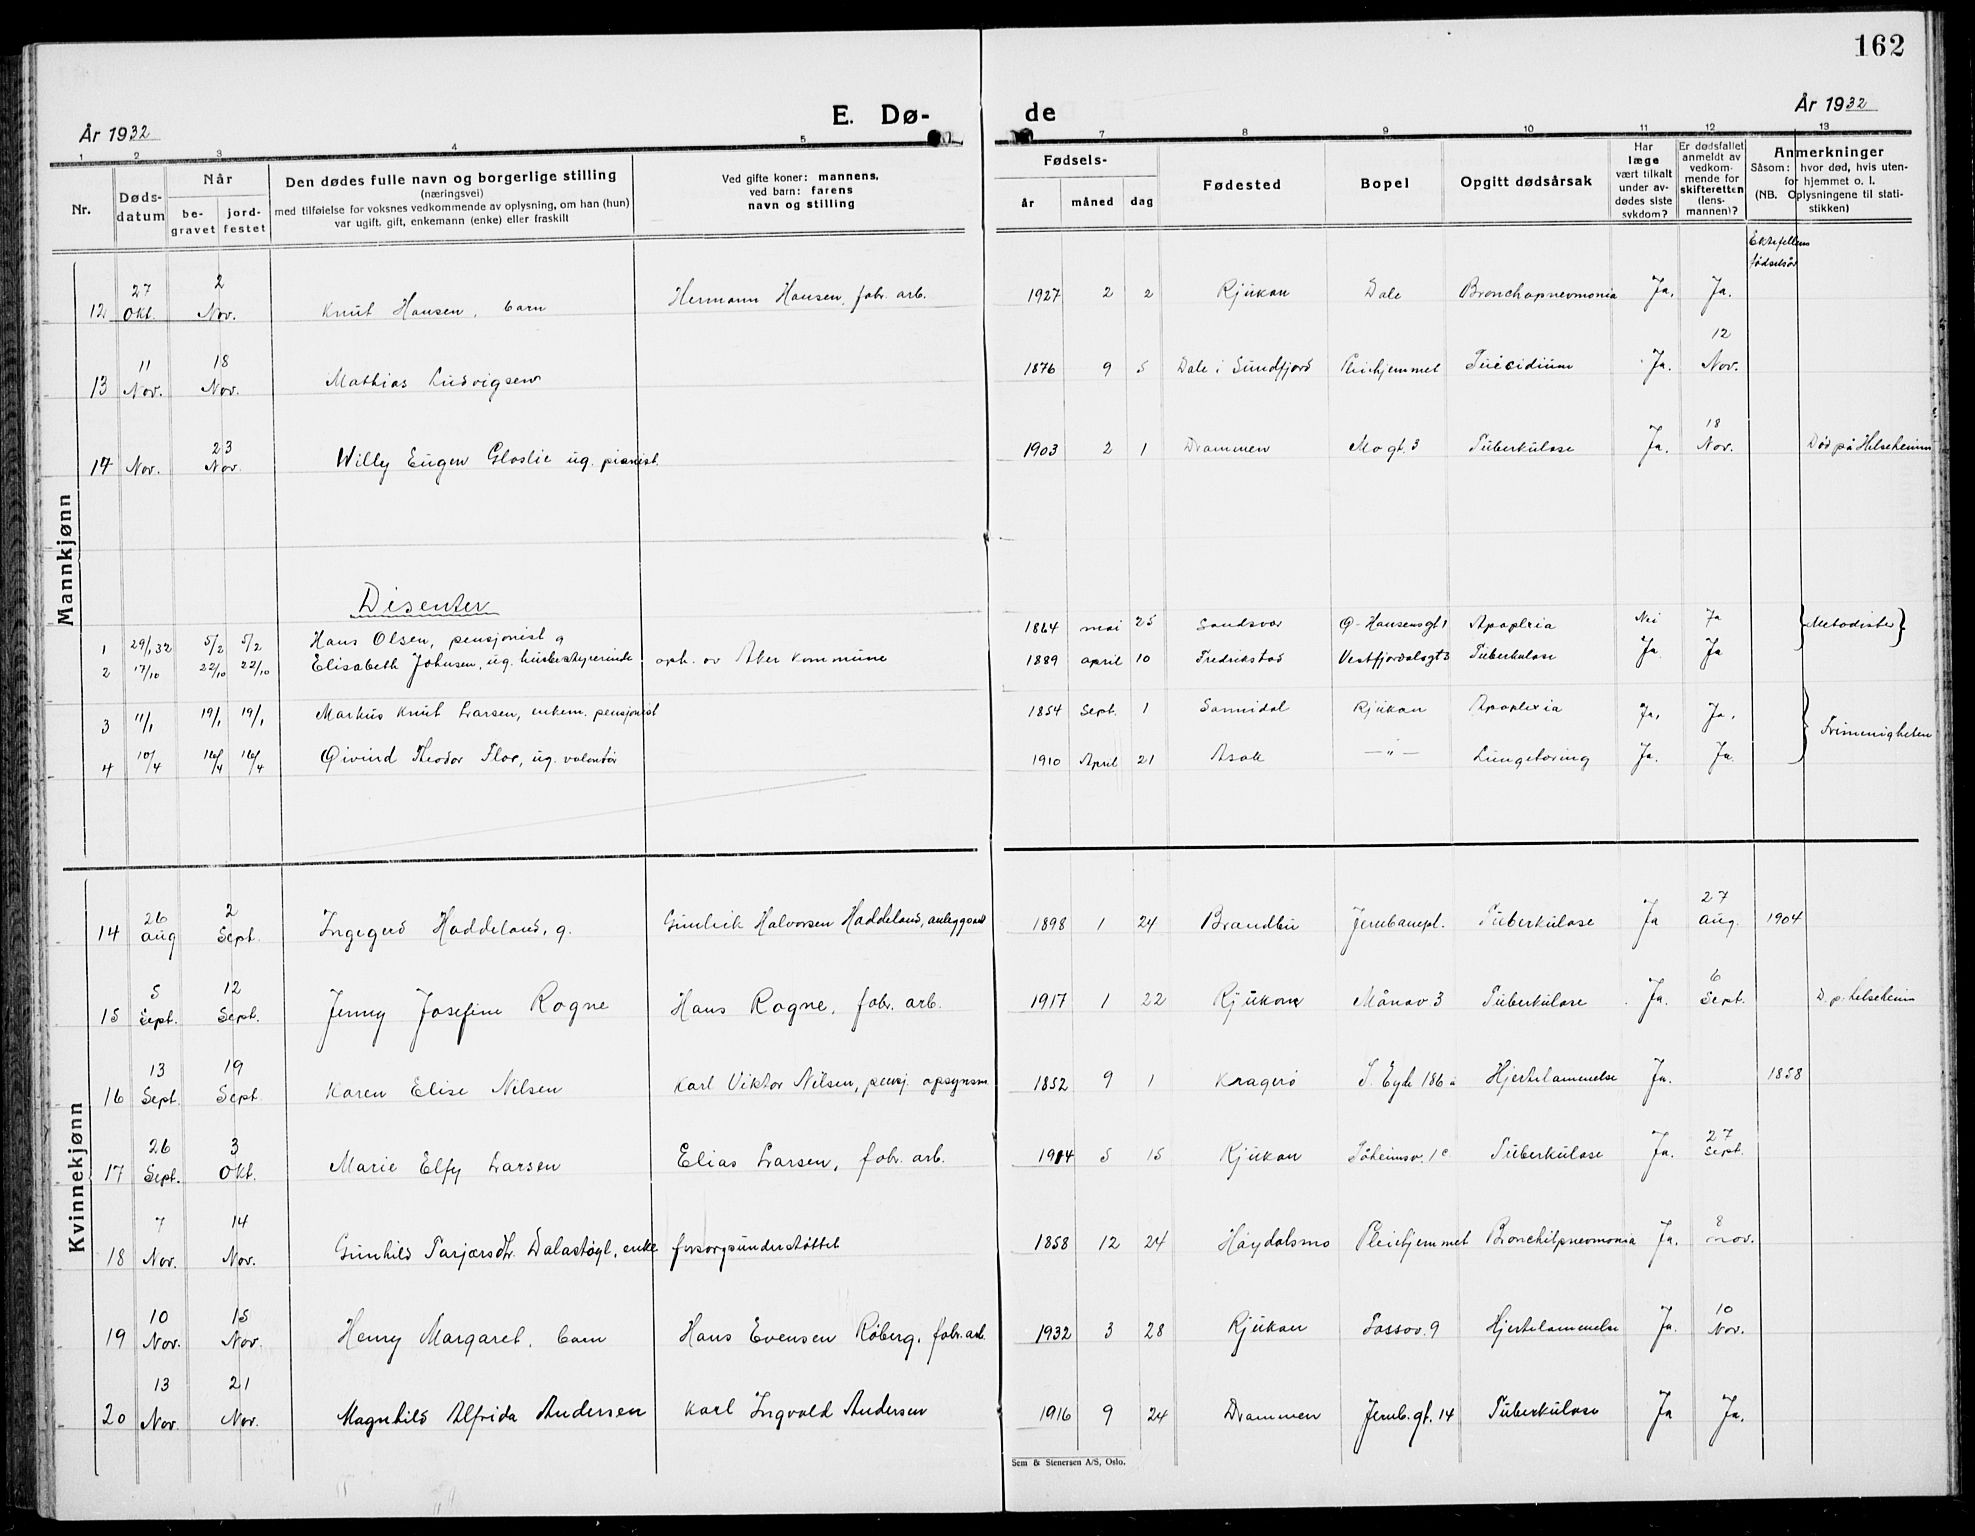 162
E. Dø- de
År 1932 År 1932
1 2 3 4 5 7 8 9 10 11 12 13
Nr. Døds-datum Når be-gravet jord-festet Den dødes fulle navn og borgerlige stilling (næringsvei) med tilføielse for voksnes vedkommende av oplysning, om han (hun) var ugift, gift, enkemann (enke) eller fraskilt Ved gifte koner: mannens, ved barn: farens navn og stilling Fødsels- år måned dag Fødested Bopel Opgitt dødsårsak Har læge vært tilkalt under av-dødes siste sykdom? Er dødsfallet anmeldt av vedkom-mende for skifteretten (lens-mannen)? Anmerkninger Såsom: hvor død, hvis uten-for hjemmet o. l. (NB. Oplysningene til stati-stikken)
Ektefellens fødselsår
Mannkjønn
12 27 Okt. 2 Nov. Knut Hansen, barn Hermann Hansen, fabr. arb. 1927 2 2 Rjukan Dale Bronchopnevmonia Ja. Ja.
13 11 Nov. 18 Nov. Mathias Ludvigsen 1876 9 5 Dale i Sundfjord Pleiehjemmet Suicidium Ja. 12 Nov.
14 Nov. 23 Nov. Willy Eugen Gloslie ug. pianist. 1903 2 1 Drammen Mogt. 3 Tuberkulose Ja. 18 Nov. Død på Helseheimen
Disenter
1 29/1 32 5/2 5/2 Hans Olsen, pensjonist g 1864 mai 25 Sandsvær Ø-Hansensgt 1 Apoplexia Nei Ja } Metodister }
2 17/10 22/10 22/10 Elisabeth Johnsen, ug. husbestyrerinde oph. av Aker kommune 1889 april 10 Fredrikstad Vestfjordalsgt 3 Tuberkulose Ja Ja
3 11/1 19/1 19/1 Markus Knut Larsen, enkem. pensjonist 1854 Sept. 1 Sannidal Rjukan Apoplexia Ja, Ja. } Frimenigheten
4 10/4 16/4 16/4 Øivind Theodor Flor, ug. volontør 1910 April 21 Asak —"— Lungetæring Ja. Ja.
Kvinnekjønn
14 26 aug 2 Sept. Ingegerd Haddeland, g. Gunleik Halvorsen Haddeland, anleggsarb 1898 1 24 Brandbu Jernbanepl. Tuberkulose Ja 27 aug. 1904
15 5 Sept. 12 Sept. Jenny Josefine Rogne Hans Rogne, fabr. arb. 1917 1 22 Rjukan Månav 3 Tuberkulose Ja. 6 Sept. D. p. helseheim
16 13 Sept. 19 Sept Karen Elise Nilsen Karl Viktor Nilsen, pensj. opsynsm. 1852 9 1 Kragerø S. Eyde 186 a Hjertelammelse Ja. 1858
17 26 Sept. 3 Okt. Marie Elfy Larsen Elias Larsen, fabr. arb. 1914 5 15 Rjukan Såheimsv. 1c Tuberkulose Ja. 27 Sept.
18 7 Nov. 14 Nov. Gunhild Tarjersdtr. Dalastøgl, enke forsorgsunderstøttet 1858 12 24 Høydalsmo Pleiehjemmet Bronchitpnevmonia Ja. 8 nov.
19 10 Nov. 15 Nov. Henny Margaret, barn Hans Evensen Røberg, fabr. arb. 1932 3 28 Rjukan Fossov. 9 Hjertelammelse Ja. 10 Nov.
20 13 Nov. 21 Nov. Magnhild Alfrida Andersen Karl Ingvald Andersen 1916 9 24 Drammen Jernb. gt. 14 Tuberkulose Ja Ja.
Sem & Stenersen A/S, Oslo.